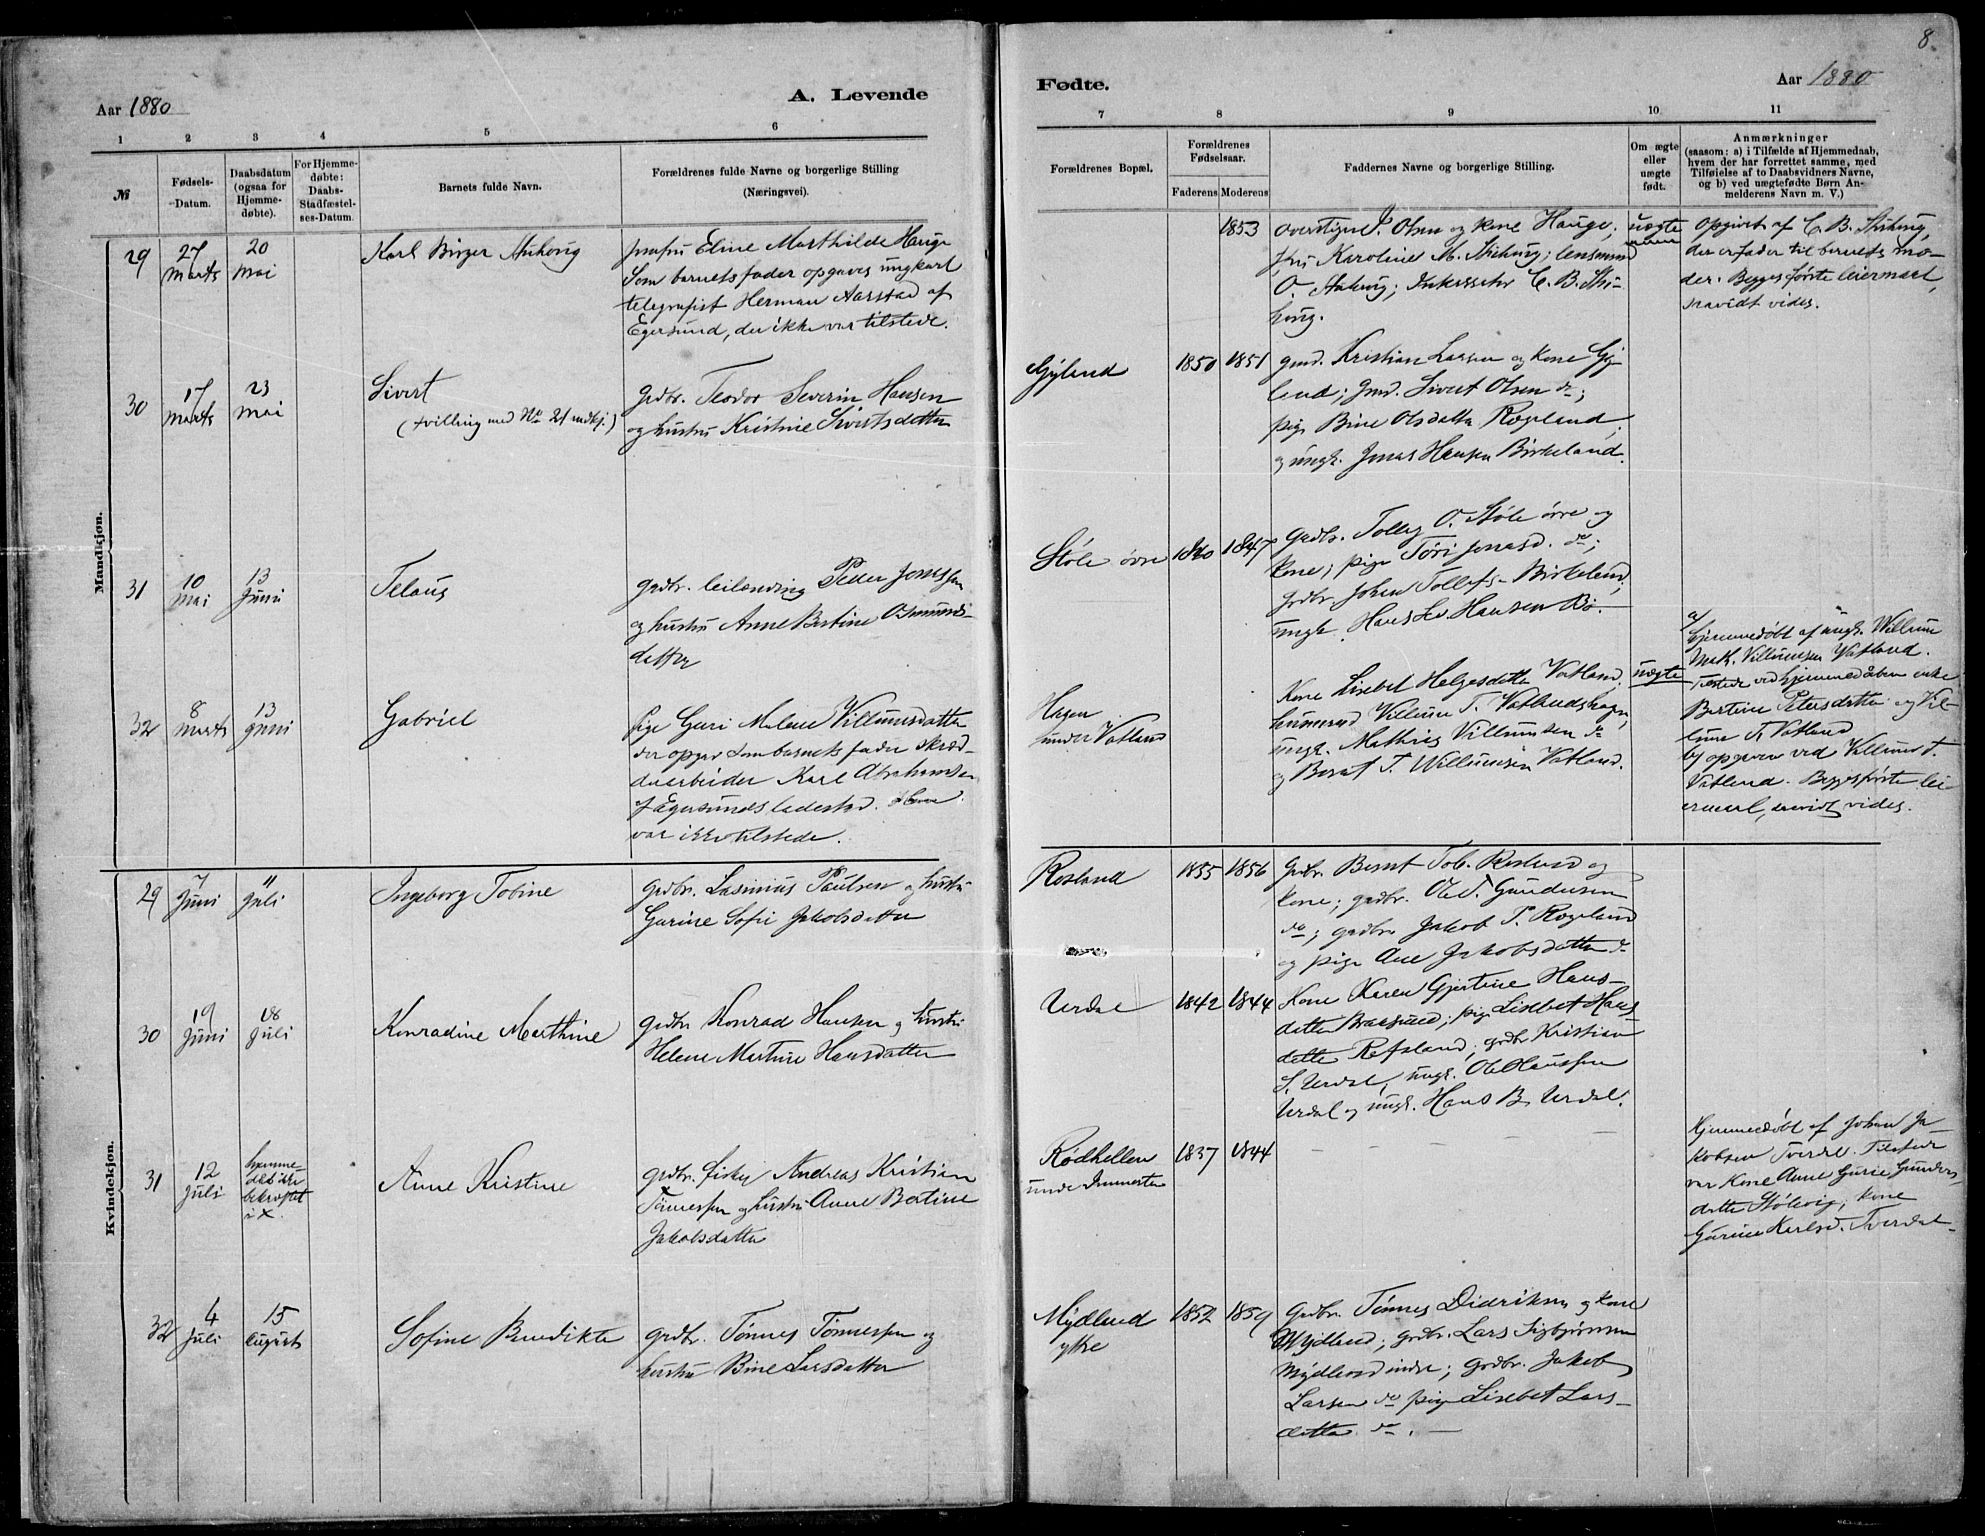 8
Aar 1880
A. Levende
Fødte.
Aar 1880
1 2 3 4 5 6 7 8 9 10 11
№
Fødsels-Datum.
Daabsdatum (ogsaa for Hjemmedøbte).
For Hjemmedøbte: Daabs-Stadfæstelses-Datum.
Barnets fulde Navn.
Forældrenes fulde Navne og borgerlige Stilling
(Næringsvei).
Forældrenes Bopæl.
Forældrenes Fødselsaar.
Faderens Moderens
Faddernes Navne og borgerlige Stilling.
Om ægte eller uægte født.
Anmærkninger
(saasom: a) i Tilfælde af Hjemmedaab,
hvem der har forrettet samme, med
Tilføielse af to Daabsvidners Navne,
og b) ved uægtefødte Børn Anmelderens Navn m. V.)
Mandkjøn.
29
27 Marts
20 Mai
Karl Birger
Eline Marthilde Hauge
Som barnets fader opgaves ungkarl
telegrafist Herman Aarstad af
Egersund, der ikke var tilstede.
1853
Olsen og kone Hauge;
Karoline M. lensmand
O. C. B.
uægte
Opgivet af C. B.
der er fader til barnets mo-
der. Begges første leiermaal,
saavidt vides.
30
17 Marts
23 Mai
Sivert
(tvilling med No 21 )
grdbr. Teodor Severin Hansen
og hustru Kristine Sivertsdatter
Gyland
1850 1851
gmd. Kristian Larsen og kone Gy-
land; gmd. Sivert Olsen do;
pige Bine Olsdatter Rægeland,
og ungk. Jonas Hansen Birkeland.
31
10 Mai
13 Juni
Telaus
grdbr. leilending Peder Jonassen
og hustru Anne Bertine Osmunds-
datter
Støle øvre
1840 1847
grdbr. Tolleg O. Støle øvre og
kone; pige Tøri Jonasd. do;
grdbr. Johan Tollefs. Birkeland,
ungk. Hans Ed. Hansen Bø.
32
8 Marts
13 Juni
Gabriel
pige Guri Malene Villumsdatter
der opgav som barnets fader skræd-
derarbeider Karl Abrahamsen
af Egersunds ladested. Han
var ikke tilstede.
Hagen
under Vatland
kone Lisebet Helgesdatter Vatland,
husmand Villum T. Vatlandshagen,
ungk. Mathias Villumsen do
og Berat T. Willumsen Vatland.
uægte
a) Hjemmedøbt af ungk. Willum
Math. Villumsen Vatland.
Tilstede ved hjemmedåben enke
Bertine Petersdatter og Vil-
lum T. Vatland
b) opgaven ved Villum T.
Vatland. Begges første lei-
ermaal, saavidt vides.
Kvindekjøn.
29
7 Juni
11 Juli
Ingeborg Tobine
grdbr. Lasinius Paulsen og hustru
Gurine Sofie Jakobsdatter
Rosland
1855 1856
grdbr. Bernt Tob. Rosland og
kone; grdbr. Ole T. Gundersen
do; grdbr Jakob P. Rægeland
og pige Ane Jakobsdatter do
30
19 Juni
18 Juli
Konradine Marthine
grdbr Konrad Hansen og hustru
Helene Martine Hansdatter
Urdal
1842 1844
kone Karen Gjertine Hans-
datter ; pige Lisebet Hans-
datter Refsland; grdbr Kristian
S. Urdal, ungk. Ole Hanssen
Urdal og ungk. Hans B. Urdal.
31
12 Juli
hjemme-
døbt ikke
bekræftet
i X.
Anne Kristine
grdbr. fisker Andreas Kristian
Tønnessen og hustru Anne Bertine
Jakobsdatter
Rødhellen
1837 1844
Hjemmedøbt af Johan Ja-
kobsen Tverdal. Tilstede
var kone Anne Gurie Gunders-
datter Stølevig; kone
Gurine Karlsd. Tverdal
32
4 Juli
15 August
Sofine Benedikte
grdbr. Tønnes Tønnessen og
hustru Bine Larsdatter
Mydland
ytre
1852 1859
Grdbr. Tønnes Didriksen og kone
Mydland; grdbr. Lars Sigbjørnsen
Mydland indre; grdbr. Jakob
Larsen do pige Lisebet Lars-
datter do.